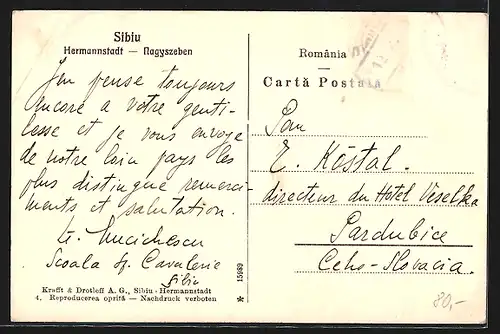 Sibiu
Hermannstadt — Nagyszeben
J'en pense toujours
encore a votre genti-
lesse et je vous envoye
de notre loin pays les
plus distingue remerci-
ments et salutation.
Scoala de Cavalerie
Sibiu
Krafft & Drotleff A. G., Sibiu-Hermannstadt
4. Reproducerea oprită — Nachdruck verboten
15989
România
Cartă Postală
Pan
E. Köstal.
directeur du Hotel Veselka
Pardubice
Ceho-Slovacia.
80,-